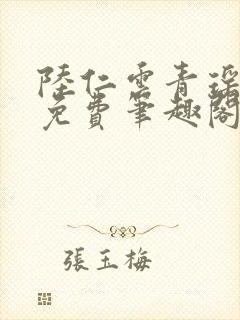 陸仁雲青瑤
免費筆趣閣
張玉梅